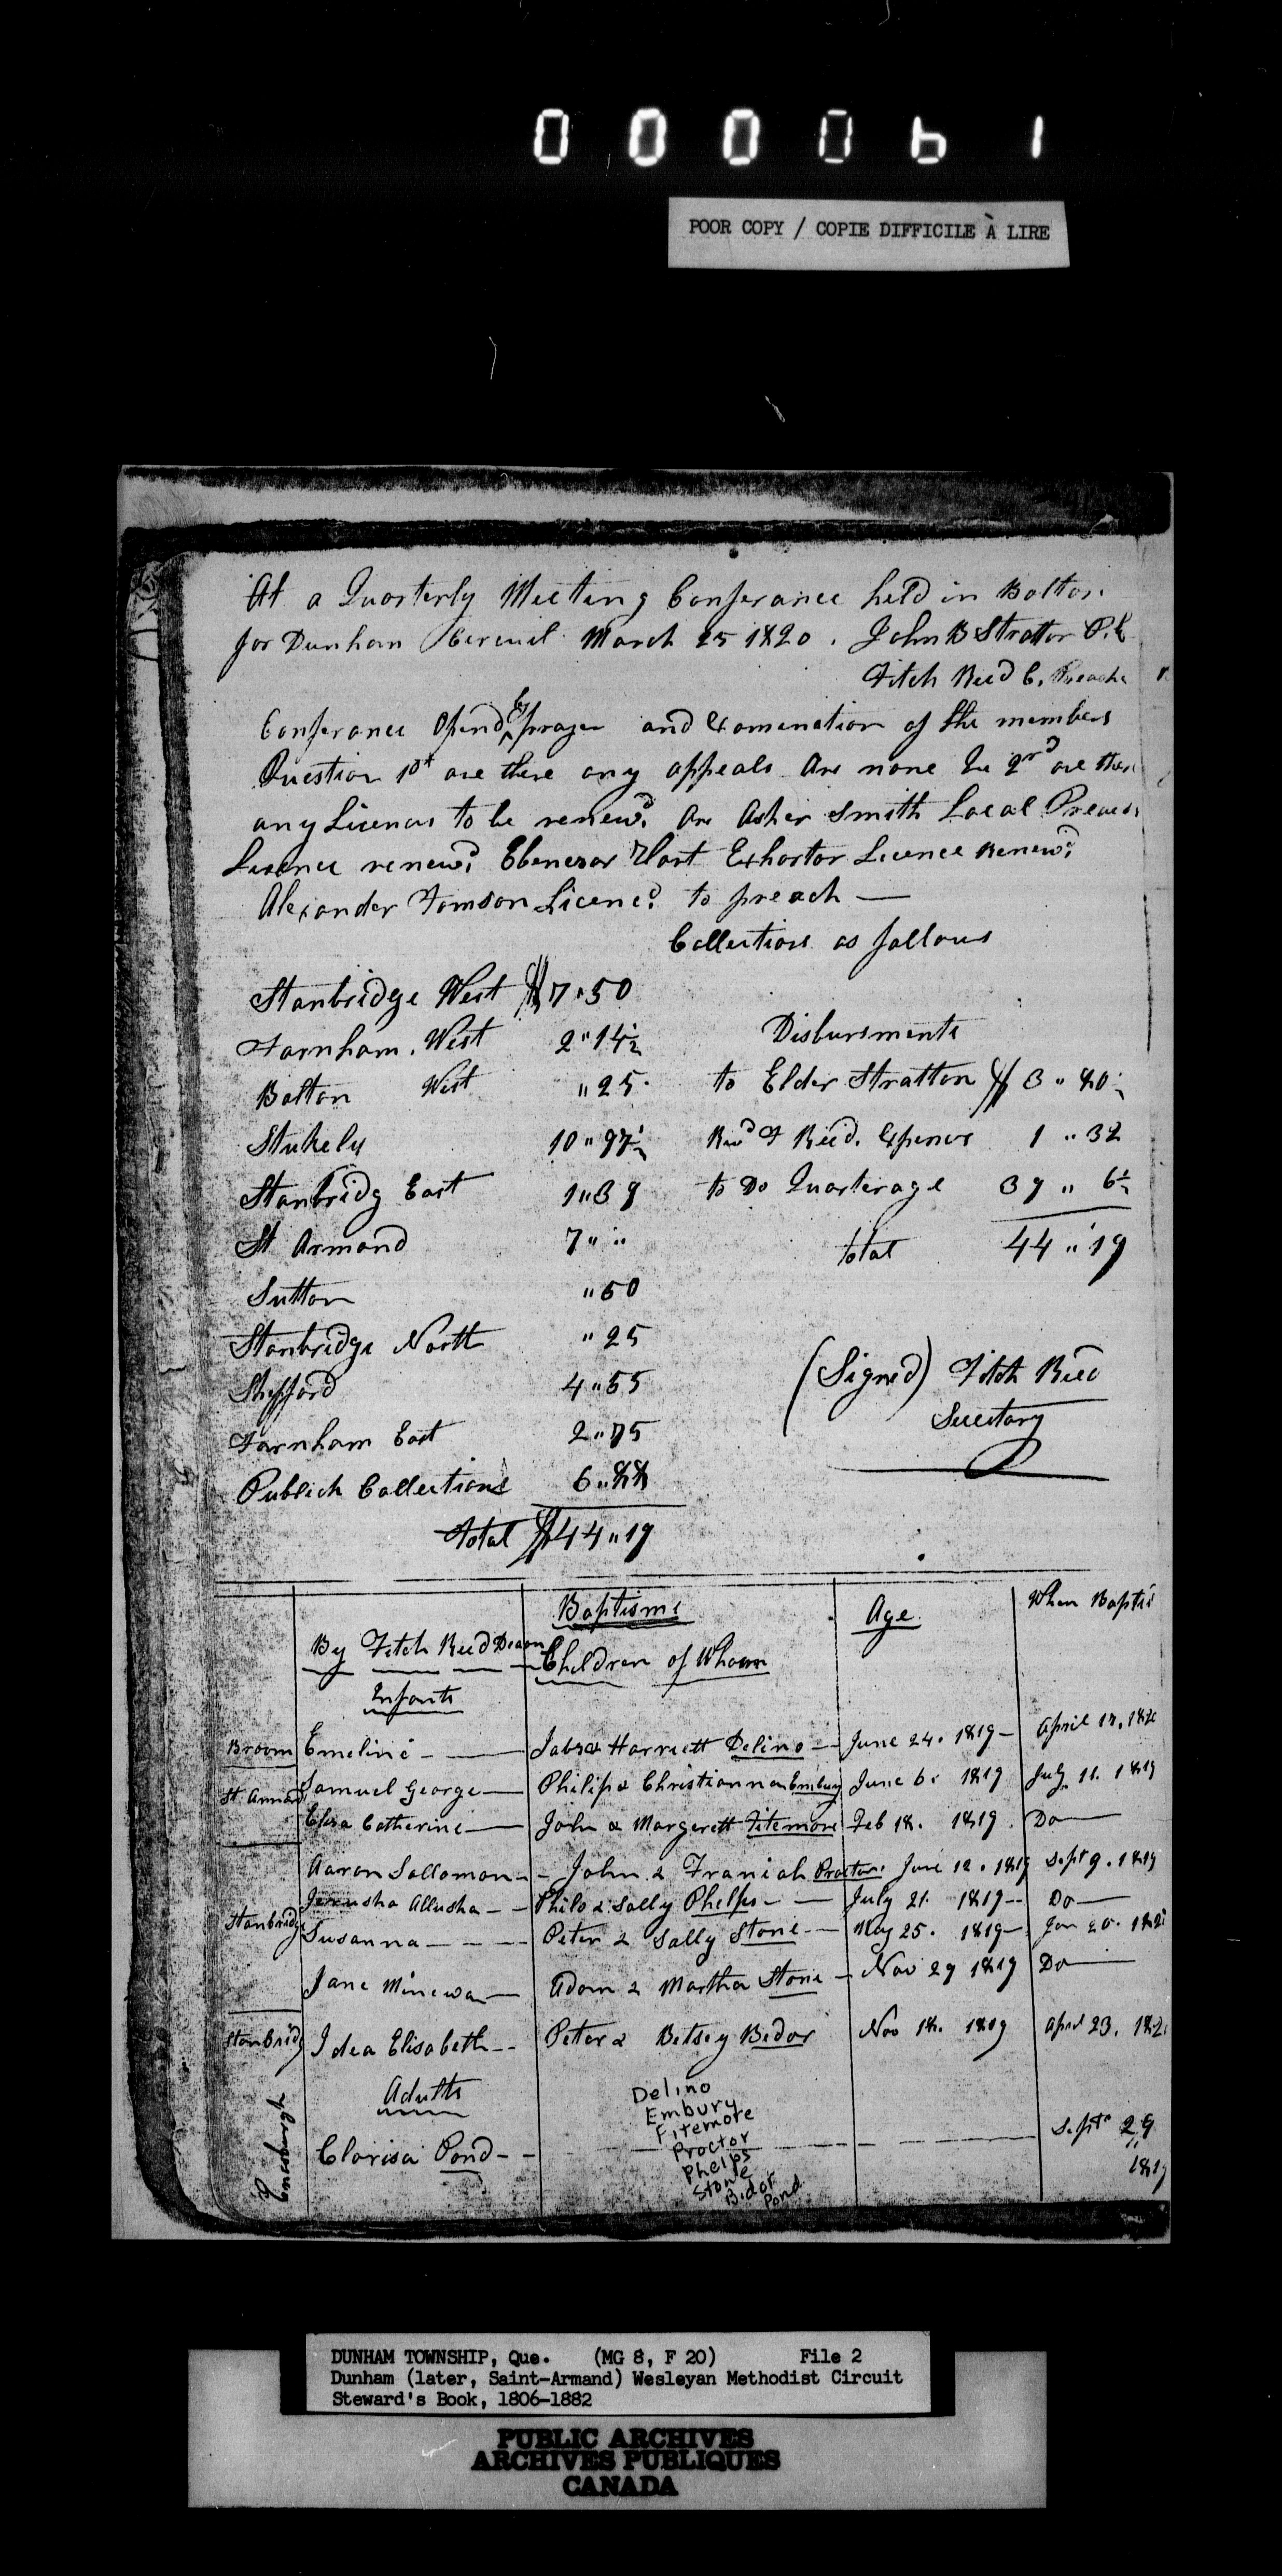 000061
POOR COPY / COPIE DIFFICILE À LIRE
At a Quarterly Meeting Conferance held in Bolton
for Dunham Cercuit March 25 1820. John B Stratton P. E
Fitch Reed C. Preache
Conferance Opend by prayer and Examenation of the members
Question 1st are there any appeals An none Qu 2nd are there
any Licences to be renewd. An Asher Smith Local Preacs
Licence renewd. Ebenezar Hart Exhortor Licence Renewd.
Alexander Tomson Licencd. to preach —
Collections as follows
Stanbridge West $7"50
Farnham. West 2"14½
Bolton West "25
Stukely 10"97½
Stanbridg East 1"39
St Armand 7""
Sutton "50
Stanbridge North "25
Shefford 4"55
Farnham East 2"75
Publick Collections 6"88
Total $44"19
Disbursments
to Elder Stratton $3"80½
Revd F Reed. Expences 1"32
to Do Quarterage 39"6½
total 44"19
(Signed) Fitch Reed
Secretary
Baptisms Age When Baptis
By Fitch Reed Deacon Children of Whom
Infants
Broom Emeline — Jabez & Harriett Delino — June 24. 1819 — April 17. 1820
St Armand Samuel George — Philip & Christianna Embury June 6. 1819 July 11. 1819
Elisa Catherine — John & Margerett Fitemore Feb 18. 1819. Do —
Aaron Sallomon — John & Franiah Proctor June 12. 1819 Sept 9. 1819
Jerusha Allusha — Philo & Sally Phelps — July 21. 1819 — Do —
Stanbridge Susanna — Peter & Sally Stone — May 25. 1819 — Jan 20. 182
Jane Minewa — Adam & Martha Stone — Nov 29 1819 Do —
Stanbridg Idea Elisabeth — Peter & Betsey Bedor Nov 18. 1819 April 23. 182
Adults
Clarisa Pond — Sept 29 1819
Delino
Embury
Fitemore
Proctor
Phelps
Stone
Bidor
Pond
DUNHAM TOWNSHIP, Que. (MG 8, F 20) File 2
Dunham (later, Saint-Armand) Wesleyan Methodist Circuit
Steward's Book, 1806-1882
PUBLIC ARCHIVES
ARCHIVES PUBLIQUES
CANADA